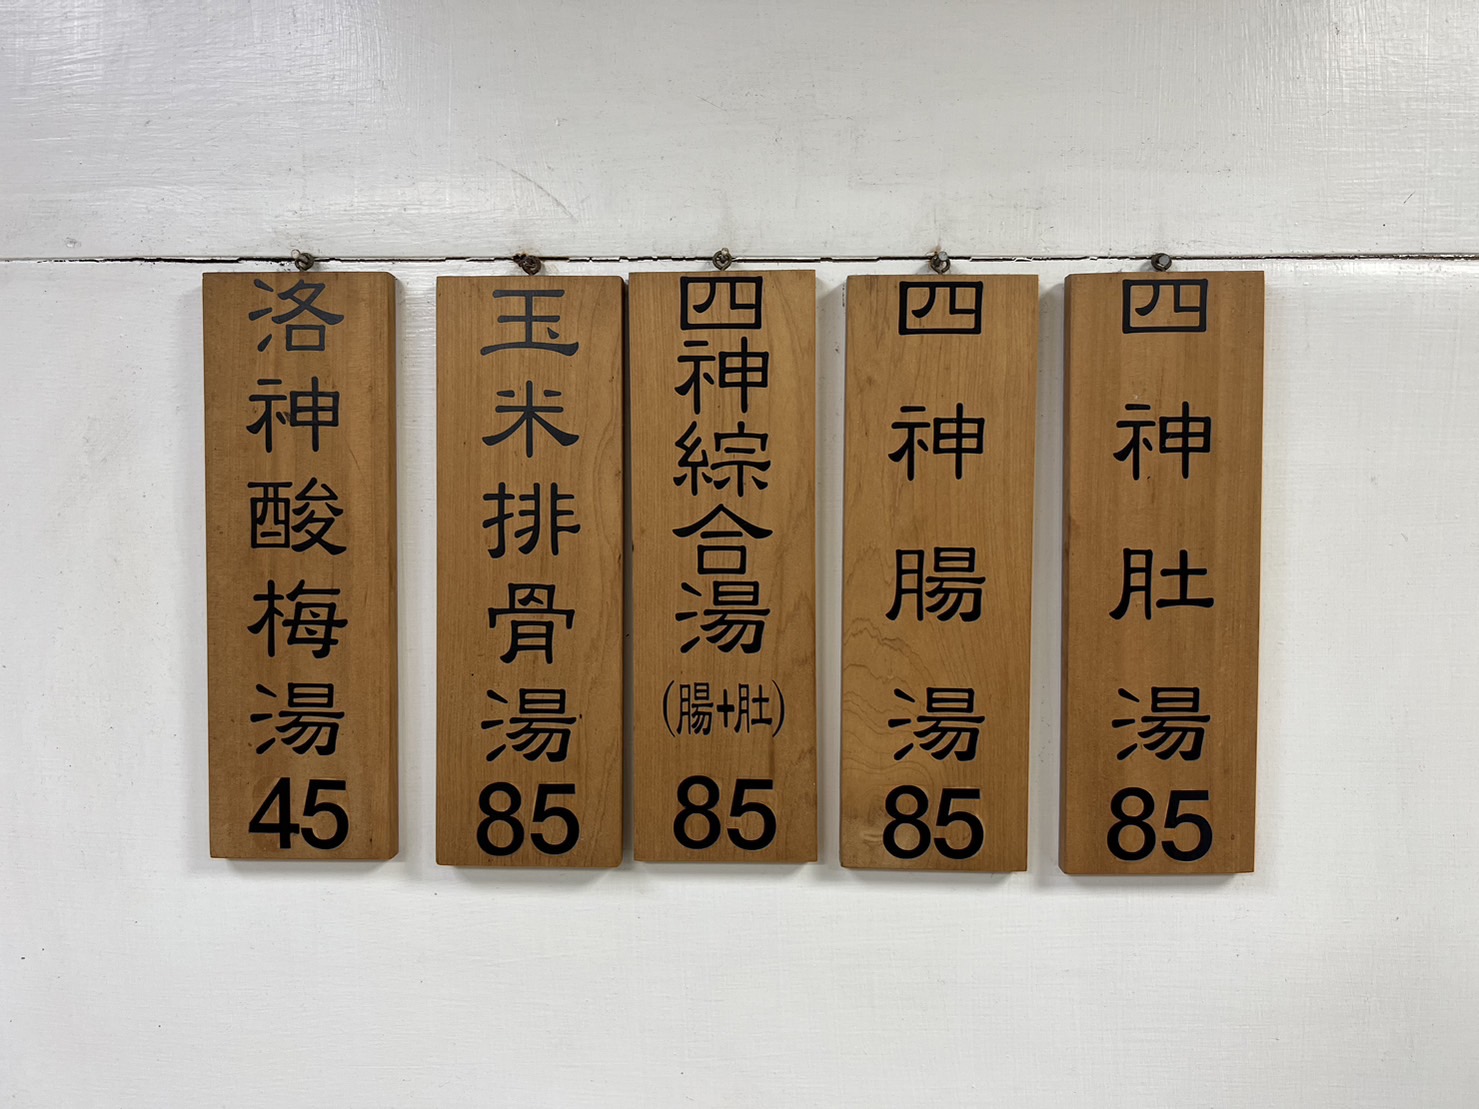 四神肚湯
85
四神腸湯
85
四神綜合湯
(腸+肚)
85
玉米排骨湯
85
洛神酸梅湯
45